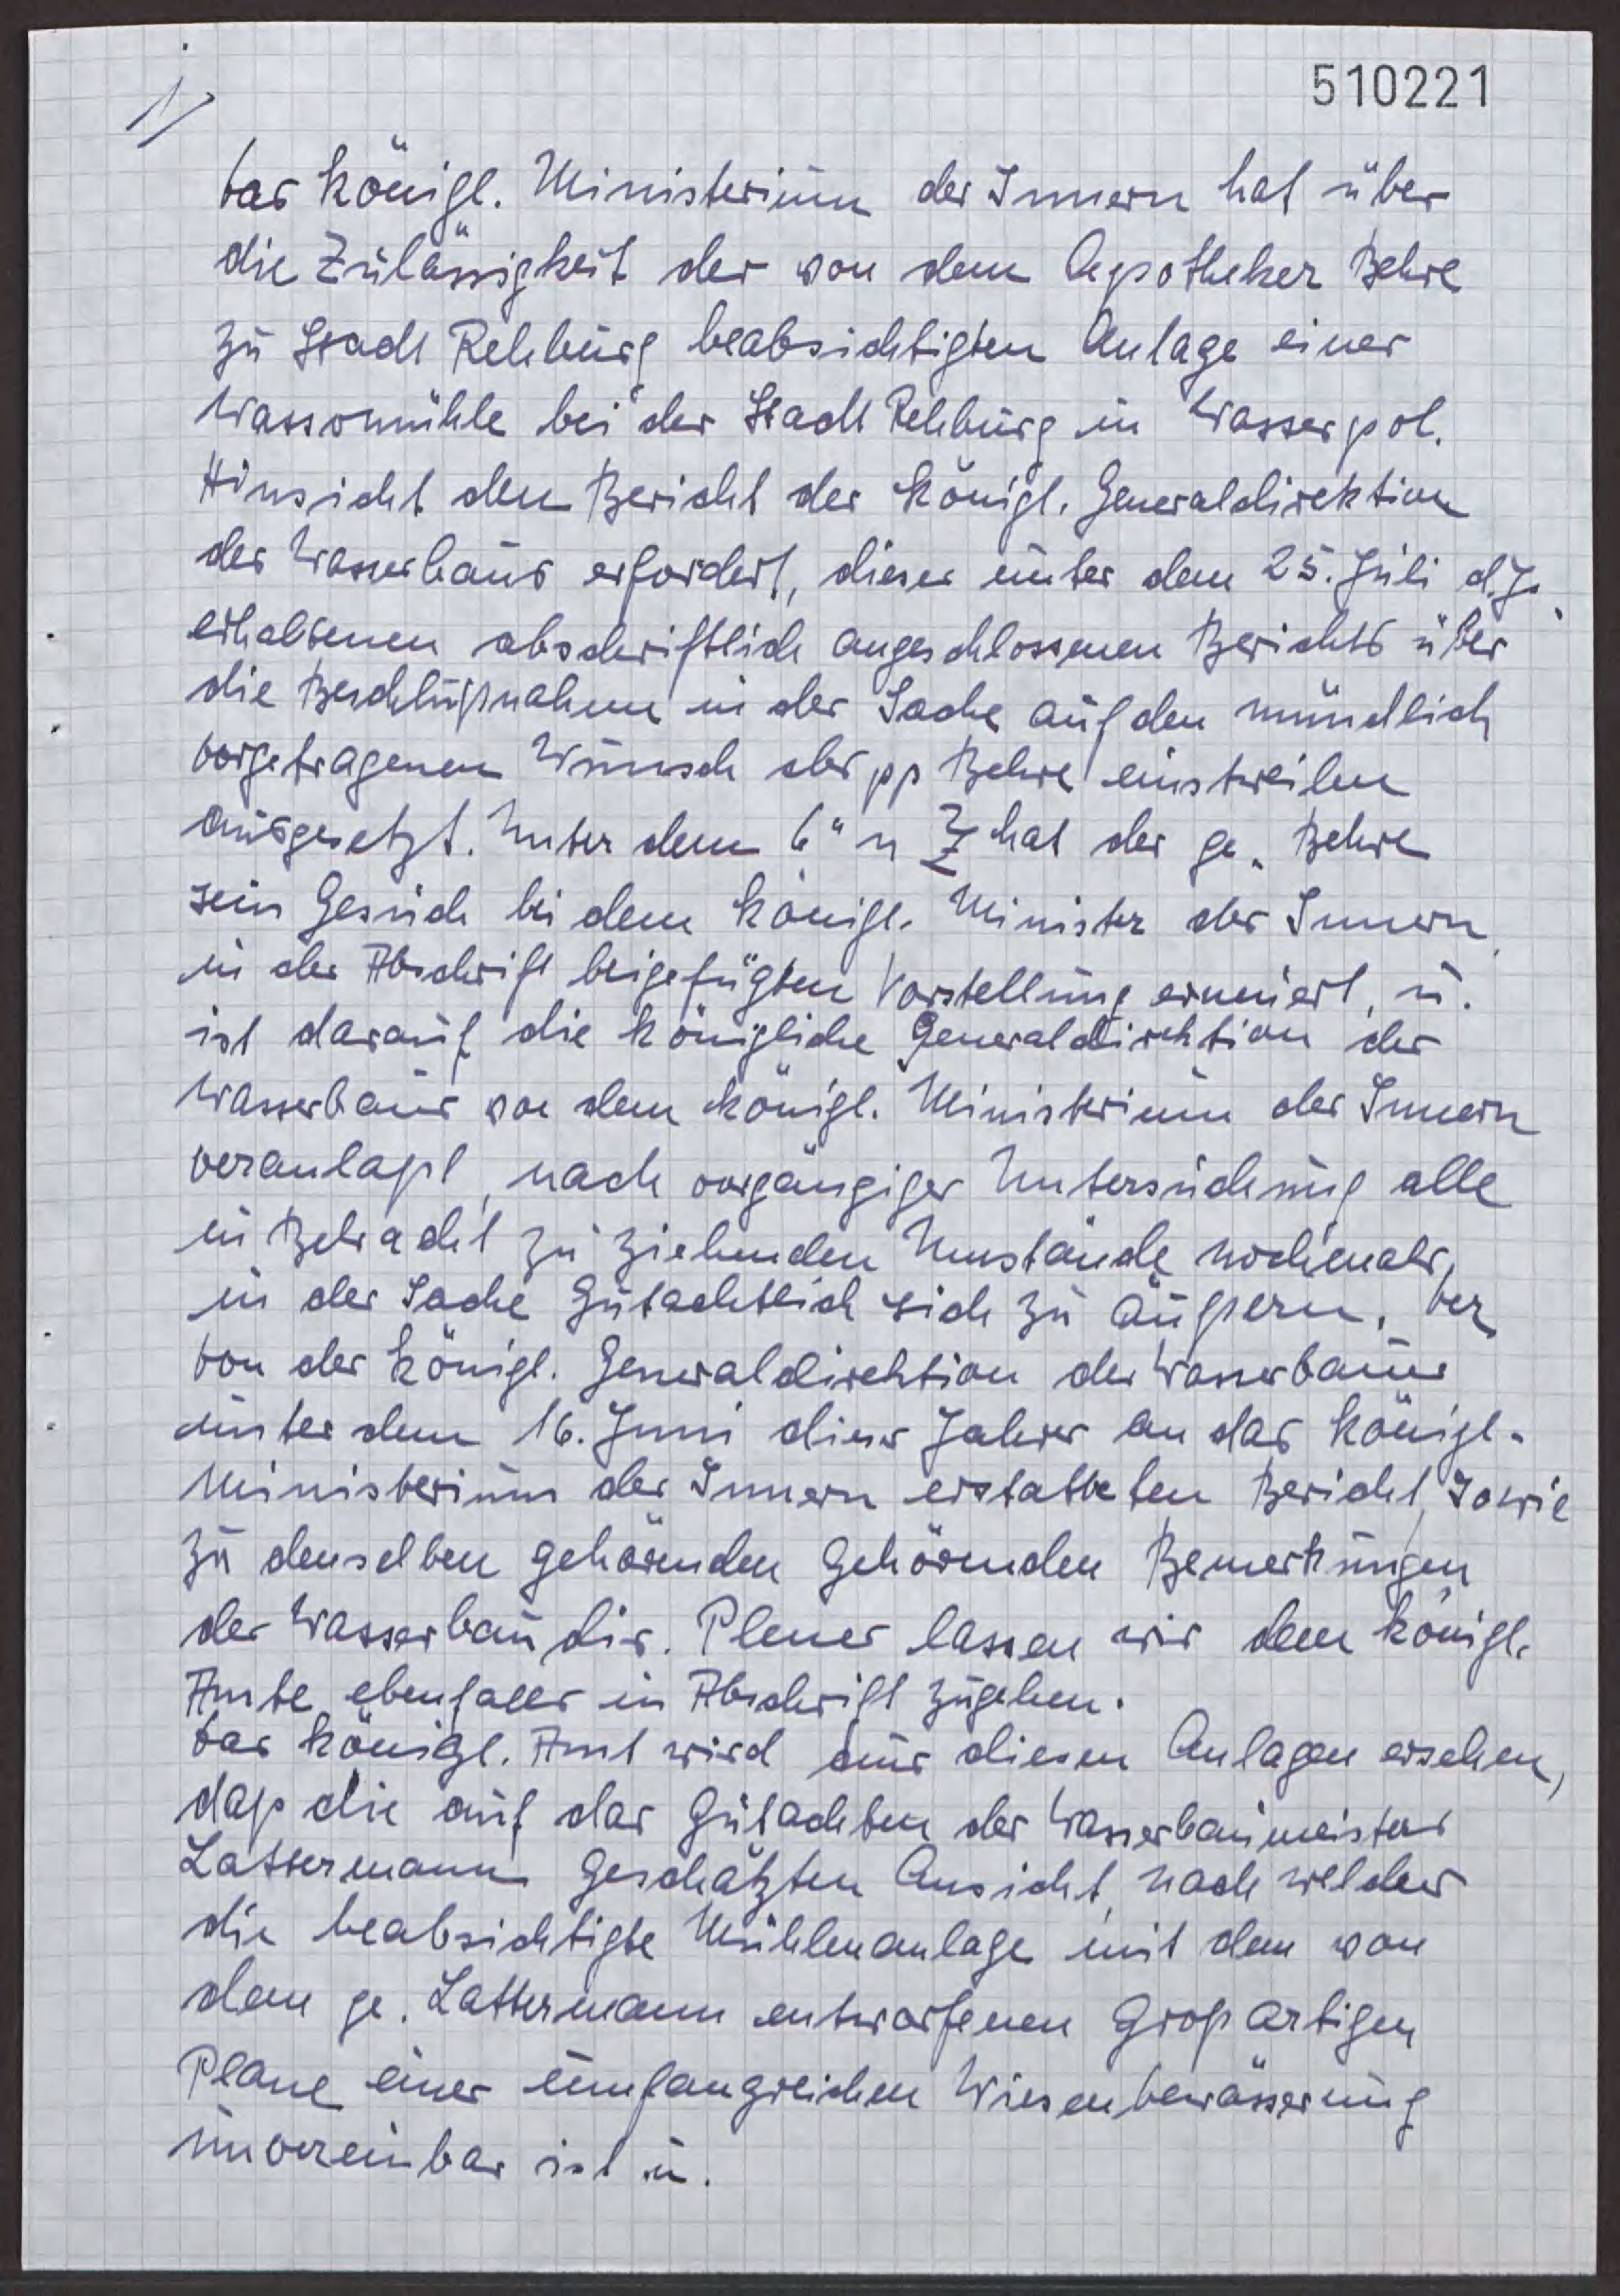 510221
1)
Das Königl. Ministerium des Innern hat über
die Zulässigkeit der von dem Apotheker Behre
zu Stadt Rehburg beabsichtigten Anlage einer
Wassermühle bei der Stadt Rehburg in Wasserpol.
Hinsicht den Bericht der Königl. Generaldirektion
des Wasserbaus erfordert, dieser unter dem 25. Juli d. Js.
erhaltenen abschriftlich angeschlossenen Berichts über
die Beschlußnahme in der Sache auf den mündlich
vorgetragenen Wunsch des pp Behre einstweilen
ausgesetzt. Unter dem 6" hat der ge. Behre
sein Gesuch bei dem Königl. Minister des Innern
in der Abschrift beigefügten Vorstellung erneuert, u.
ist darauf die Königliche Generaldirektion des
Wasserbaus von dem Königl. Ministerium des Innern
veranlaßt, nach vorgängiger Untersuchung alle
in Betracht zu ziehenden Umstände nochmals,
in der Sache Gutachtlich sich zu äußern. Der
von der Königl. Generaldirektion des Wasserbaus
unter dem 16. Juni dieses Jahres an das Königl.
Ministerium des Innern erstatteten Bericht, Sowie
zu denselben gehörenden Gehörenden Bemerkungen
der Wasserbaudir. lassen wir dem Königl.
Amte ebenfalls in Abschrift zugehen.
Das Königl. Amt wird aus diesen Anlagen ersehen,
daß die auf das Gutachten des Wasserbaumeisters
Lattermann Geschätzten Ansicht, nach welcher
die beabsichtigte Mühlenanlage mit dem von
dem ge. Lattermann entworfenen Großartigen
Plane einer umfangreichen Wiesenbewässerung
unvereinbar ist u.